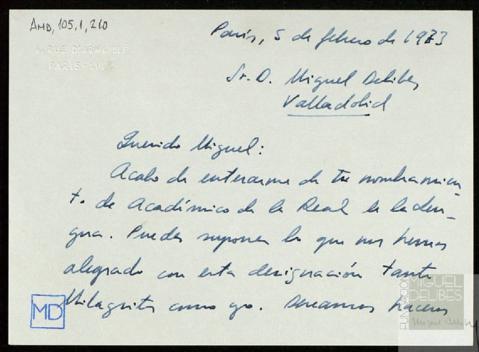 AMD, 105, 1, 210
PARIS
París, 5 de febrero de 1973
Sr. D. Miguel Delibes
Valladolid
Querido Miguel:
Acabo de enterarme de tu nombramien-
to de Académico de la Real de la Len-
gua. Puedes suponer lo que nos hemos
alegrado con esta designación tanto
Milagritos como yo. Deseamos haceros
MD
FUNDACIÓN
MIGUEL
DELIBES